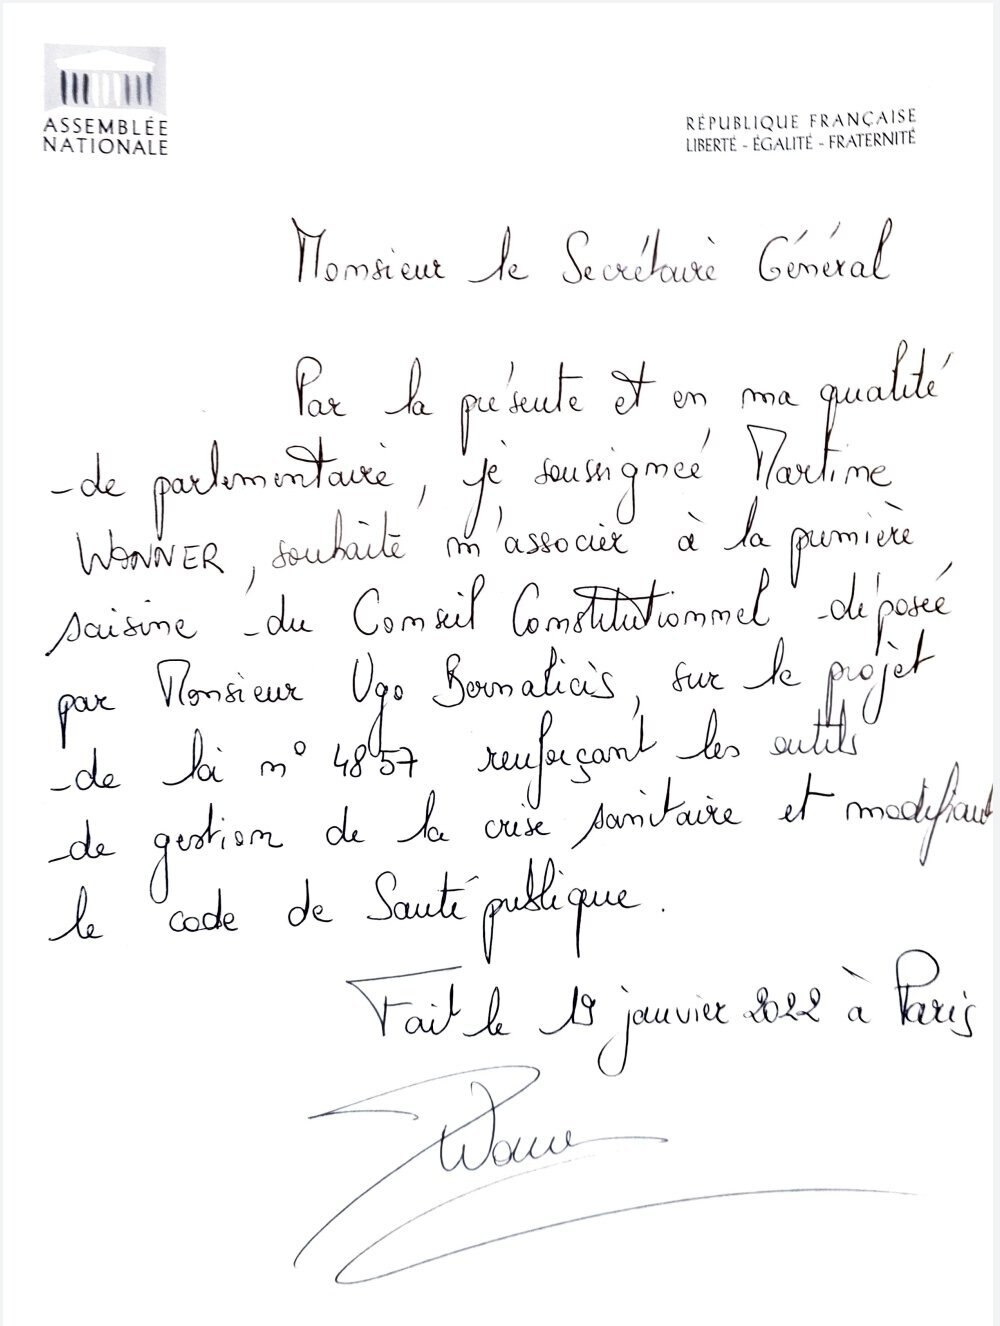 ASSEMBLÉE
NATIONALE
RÉPUBLIQUE FRANÇAISE
LIBERTÉ - ÉGALITÉ - FRATERNITÉ
Monsieur le Secrétaire Général
Par la présente et en ma qualité
de parlementaire, je soussignée Martine
WONNER, souhaite m'associer à la première
saisine du Conseil Constitutionnel déposée
par Monsieur Ugo Bernalicis, sur le projet
de loi n° 4857 renforçant les outils
de gestion de la crise sanitaire et modifiant
le code de Santé publique.
Fait le 19 janvier 2022 à Paris
Wonner